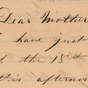 Dear Mother
I have just
the 18th
this afternoon